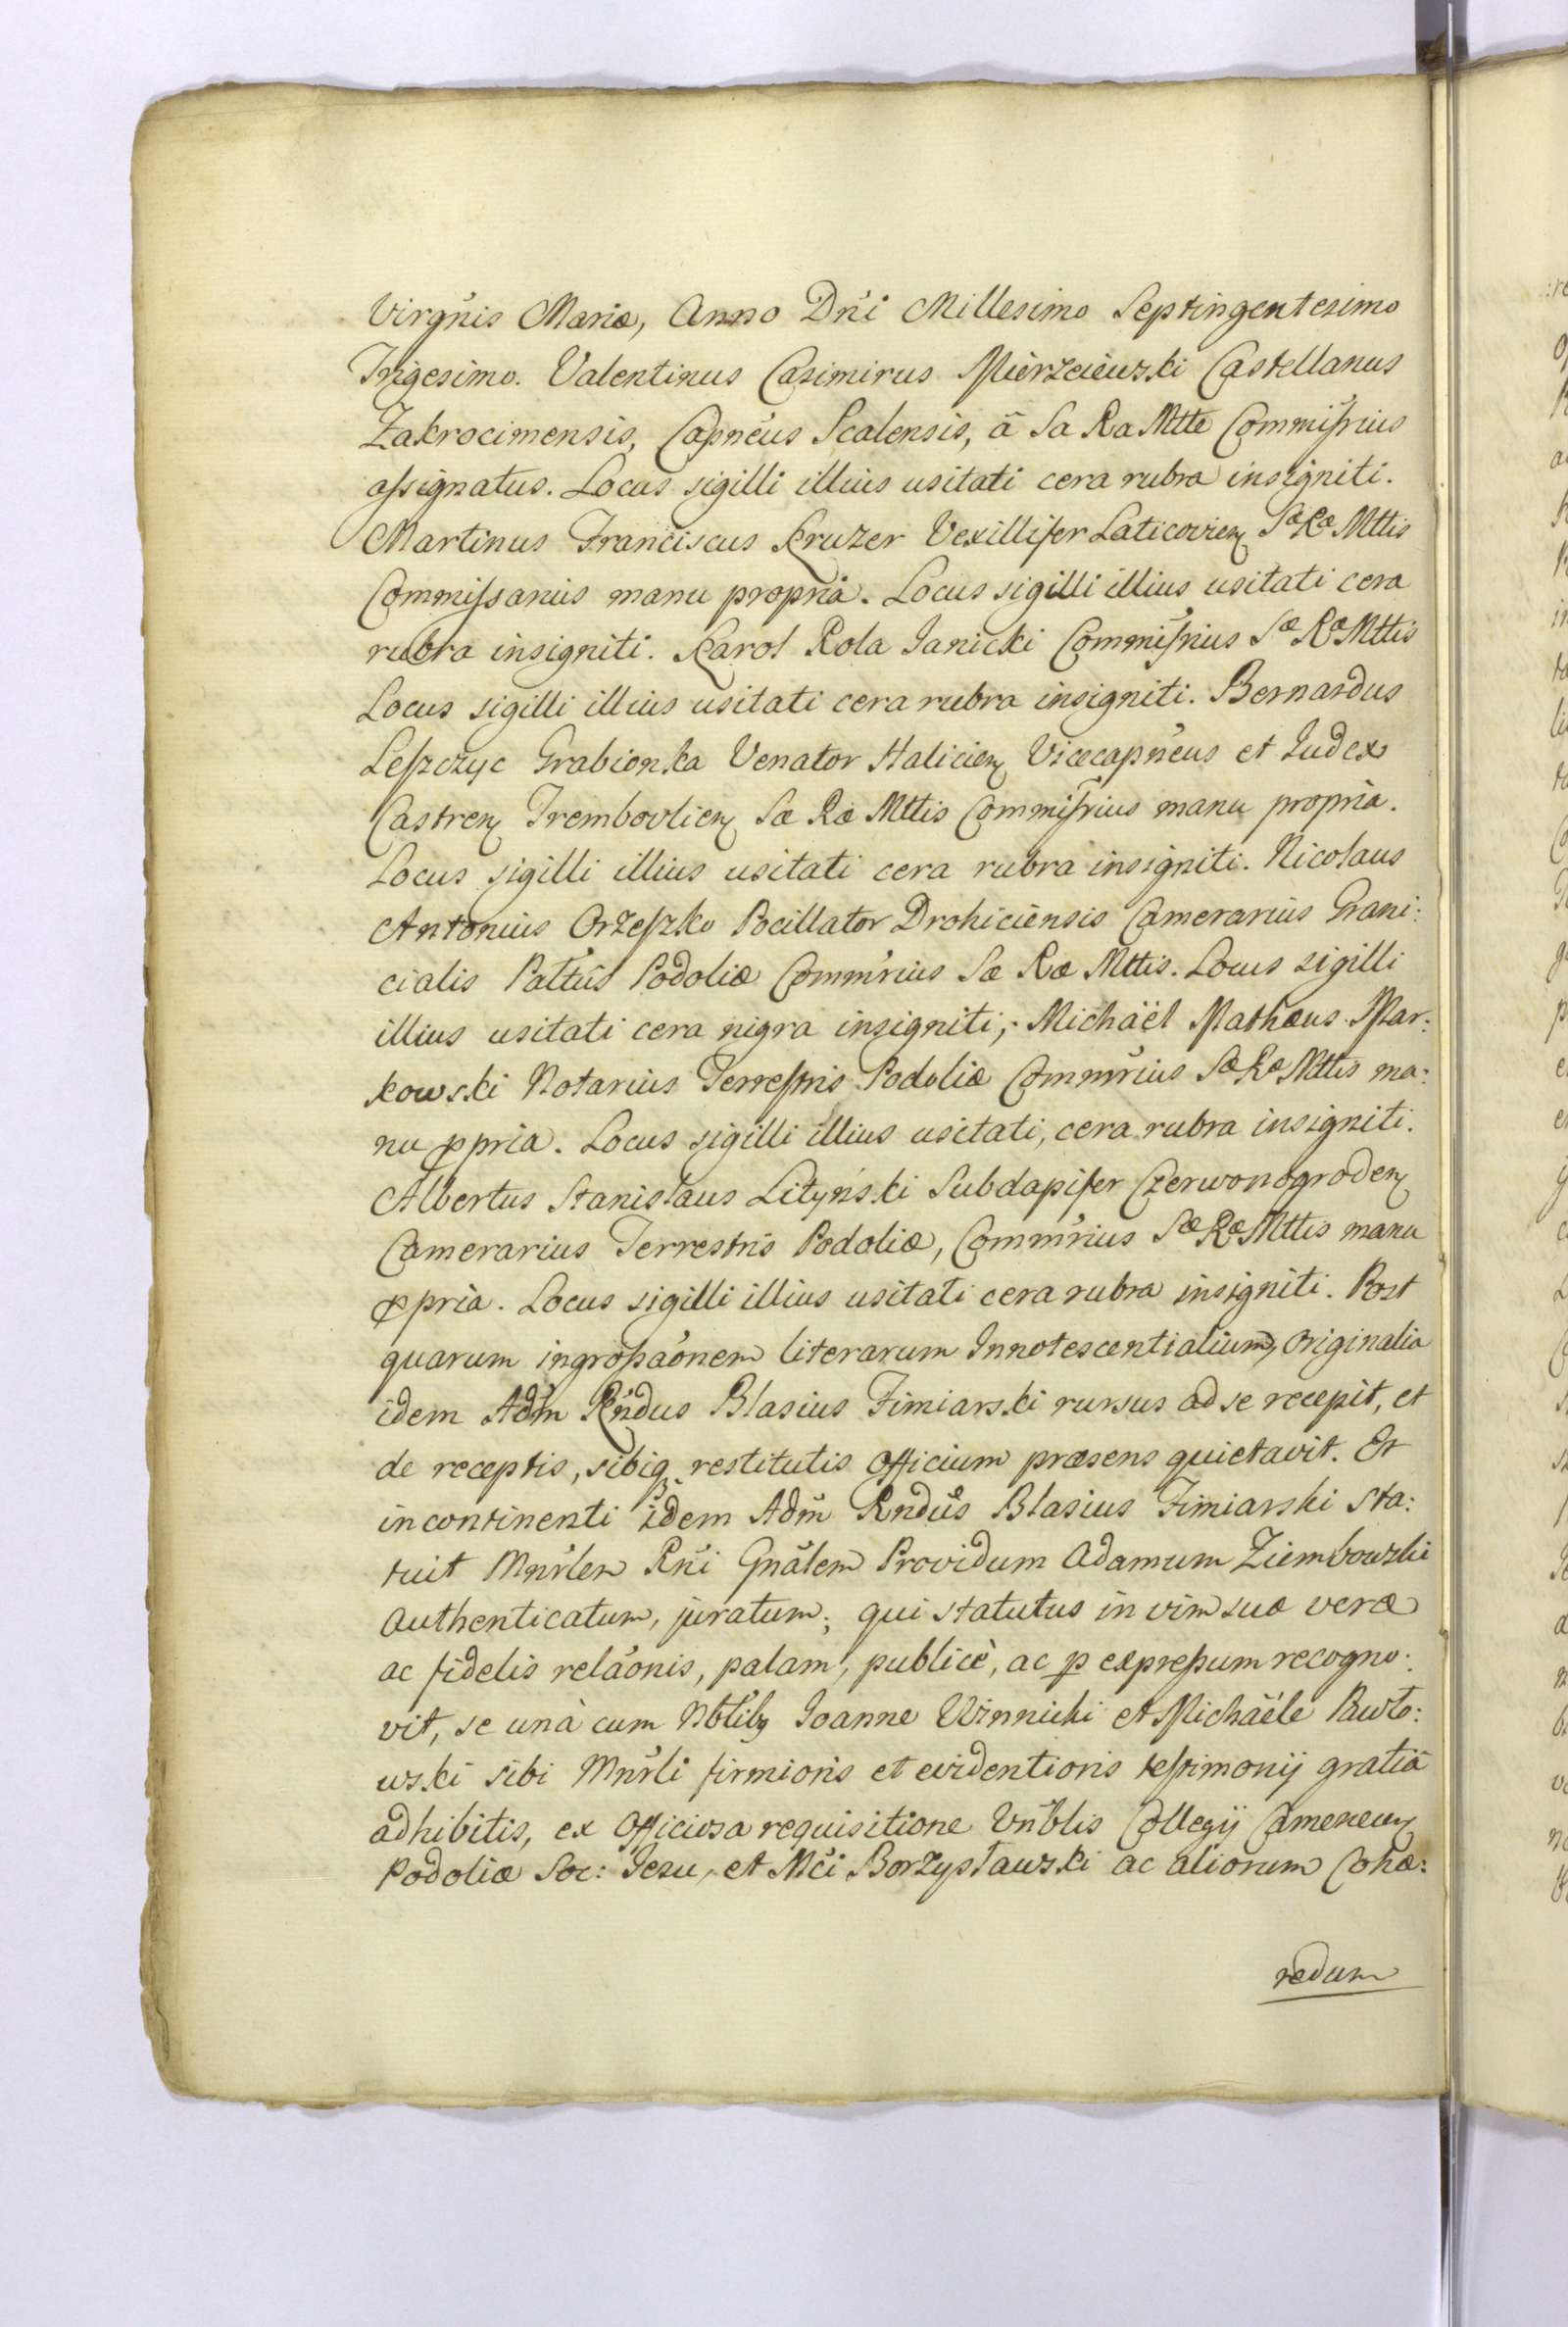 Virgñis Mariæ, Anno Dñi Millesimo Septingentesimo
Trigesimo. Valentinus Casimirus Mierzeiewski Castellanus
Zakrocimensis, Capneus Scalensis, â Sa Ra Mtte Commiſsrius
aſsignatus. Locus sigilli illius usitati cera rubra insigniti.
Martinus Franciscus Kruzer Vexillifer Laticovien Sæ Ræ Mttis
Commiſsarius manu propria. Locus sigilli illius usitati cera
rubra insigniti. Karol Rola Janicki Commiſsrius Sæ Ræ Mttis
Locus sigilli illius usitati cera rubra insigniti. Bernardus
Leſzczyc Grabionka Venator Halicien Vicecapneus et Judex
Castren Trembovlien Sæ Ræ Mttis Commiſsrius manu propria.
Locus sigilli illius usitati cera rubra insigniti. Nicolaus
Antonius Orzeſzko Pocillator Drohiciensis Camerarius Grani:
cialis Pałtûs Podoliæ Commrius Sæ Ræ Mttis. Locus sigilli
illius usitati cera nigra insigniti; Michaël Mathæus Mar:
kowski Notarius Terreſtris Podoliæ Commrius Sæ Ræ Mttis ma:
nu ꝓpria. Locus sigilli illius usitati, cera rubra insigniti.
Albertus Stanislaus Lityński Subdapifer Czerwonogroden
Camerarius Terrestris Podoliæ, Commrius Sæ Ræ Mttis manu
ꝓpria. Locus sigilli illius usitati cera rubra insigniti. Post
quarum ingroſsaõnem literarum Innotescentialium, Originalia
idem Adm̃ Rñdus Blasius Fimiarski rursus ad se recepit, et
de receptis, sibiq restitutis Officium præsens quietavit. Et
in continenti idem Adm̃ Rndus Blasius Fimiarski sta:
tuit Mnrlem Rñi Gnãlem Providum Adamum Ziembowski
authenticatum, juratum; qui statutus in vim suæ veræ
ac fidelis relãonis, palam, publicè, ac p expreſsum recogno:
vit, se unà cum Nbtibꝫ Joanne Winnicki et Michaële Pawło:
wski sibi Mnrli firmioris et evidentioris teſtimonij gratiâ
adhibitis, ex Officiosa requisitione Vnblis Collegij Camenecen
Podoliæ Soc: Jesu, et Mci Borzysławski ac aliorum Cohæ:
redum